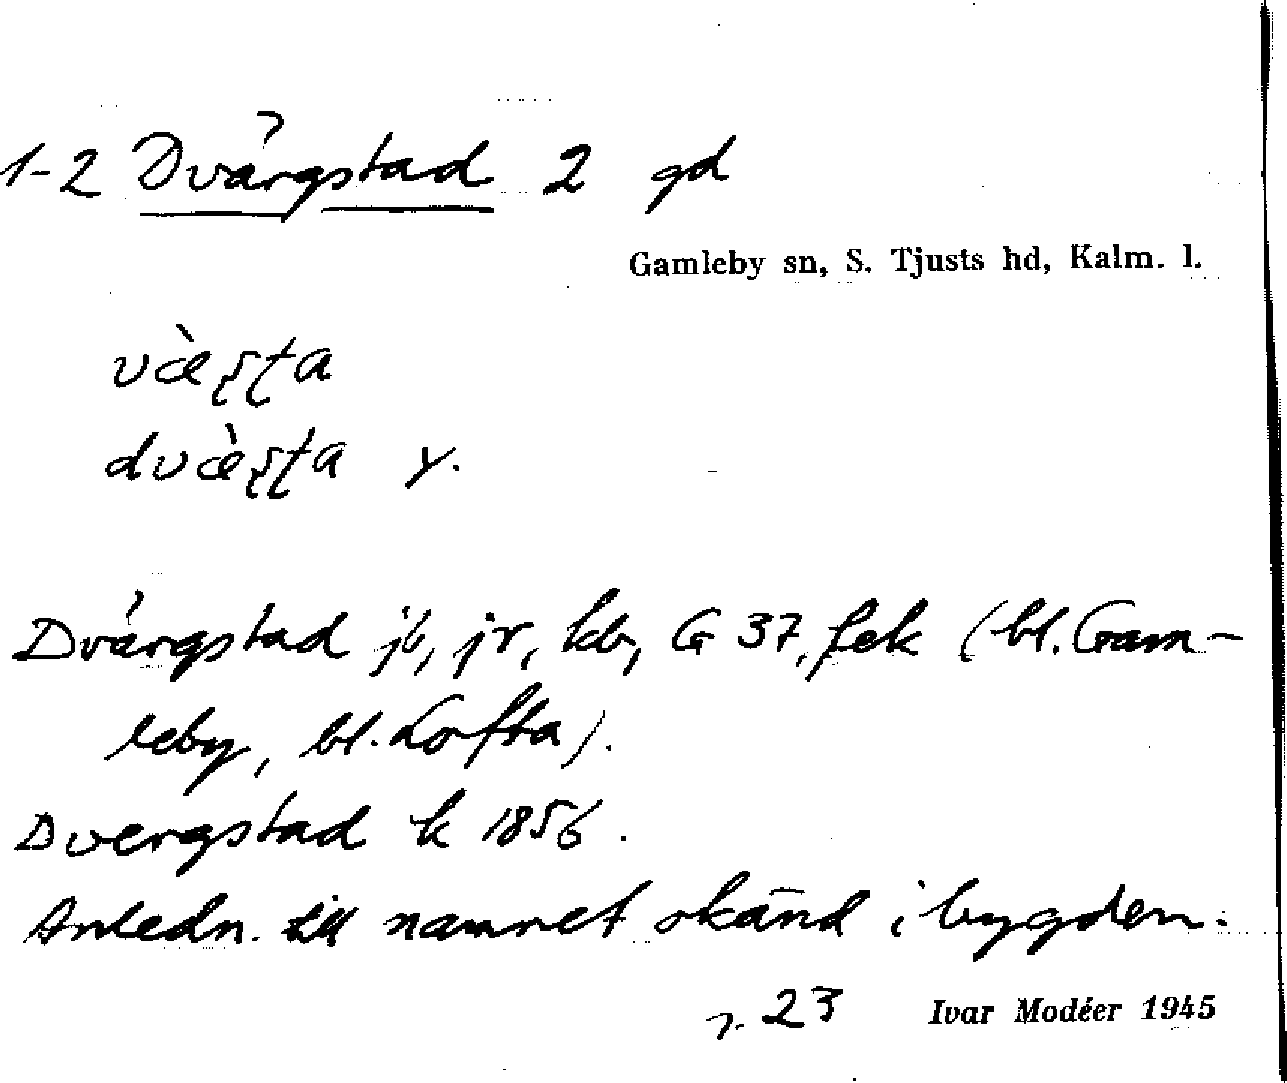 1-2 Dvärgstad 2 gd
Gamleby sn, S. Tjusts hd, Kalm. l.
væ̀ʂʈa
dvæ̀ʂʈa y.
Dvärgstad jb, jr, kb, G 37, fek (bl. Gam-
leby, bl. Lofta).
Dvergstad k 1856.
Anledn. till namnet okänd i bygden.
23 Ivar Modéer 1945